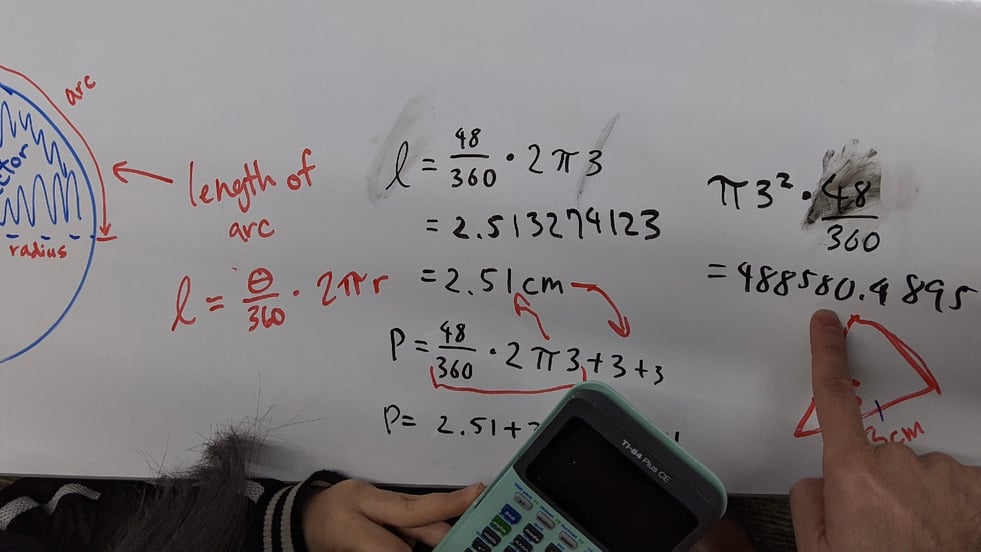 arc
radius
length of
arc
l = θ/360 · 2πr
l = 48/360 · 2π3
= 2.513274123
= 2.51cm
P = 48/360 · 2π3 + 3 + 3
P = 2.51 +
π3² · 48/360
= 488580.4895
3cm
TI-84 Plus CE